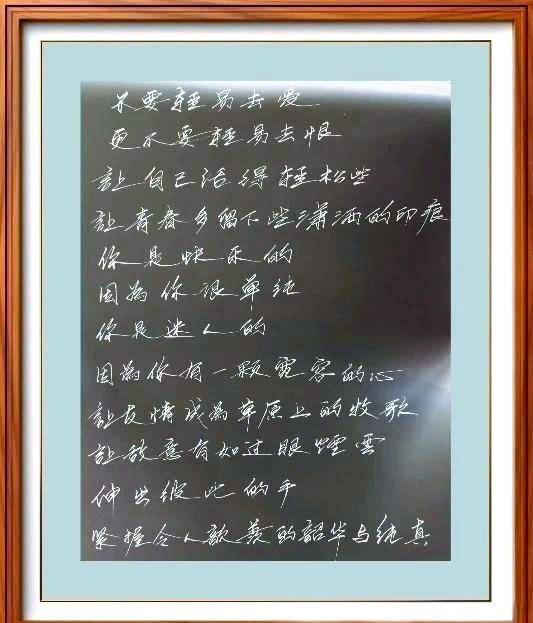 不要輕易去愛
更不要輕易去恨
讓自己活得輕松些
讓青春多留下些瀟洒的印痕
你是快乐的
因為你很单纯
你是迷人的
因為你有一颗寬容的心
讓友情成為草原上的牧歌
讓敌意有如过眼煙雲
伸出彼此的手
紧握令人歆羨的韶华与纯真